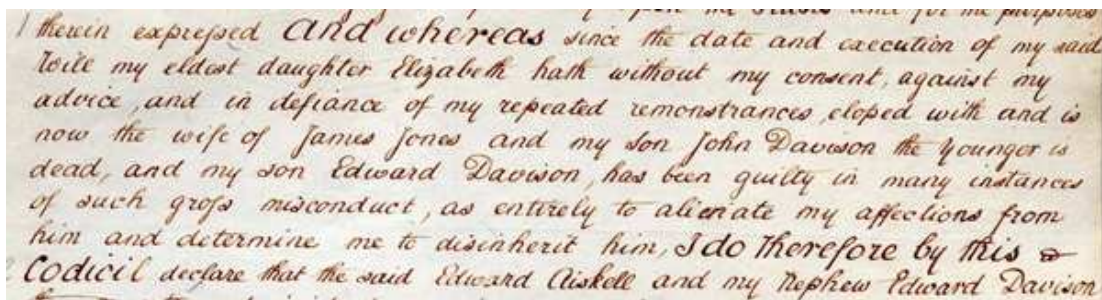 upon the Trusts and for the purposes
therein expressed And whereas since the date and execution of my said
Will my eldest daughter Elizabeth hath without my consent, against my
advice, and in defiance of my repeated remonstrances, eloped with and is
now the wife of James Jones and my son John Davison the younger is
dead, and my son Edward Davison, has been guilty in many instances
of such gross misconduct, as entirely to alienate my affections from
him and determine me to disinherit him, I do therefore by this
Codicil declare that the said Edward Aiskell and my Nephew Edward Davison